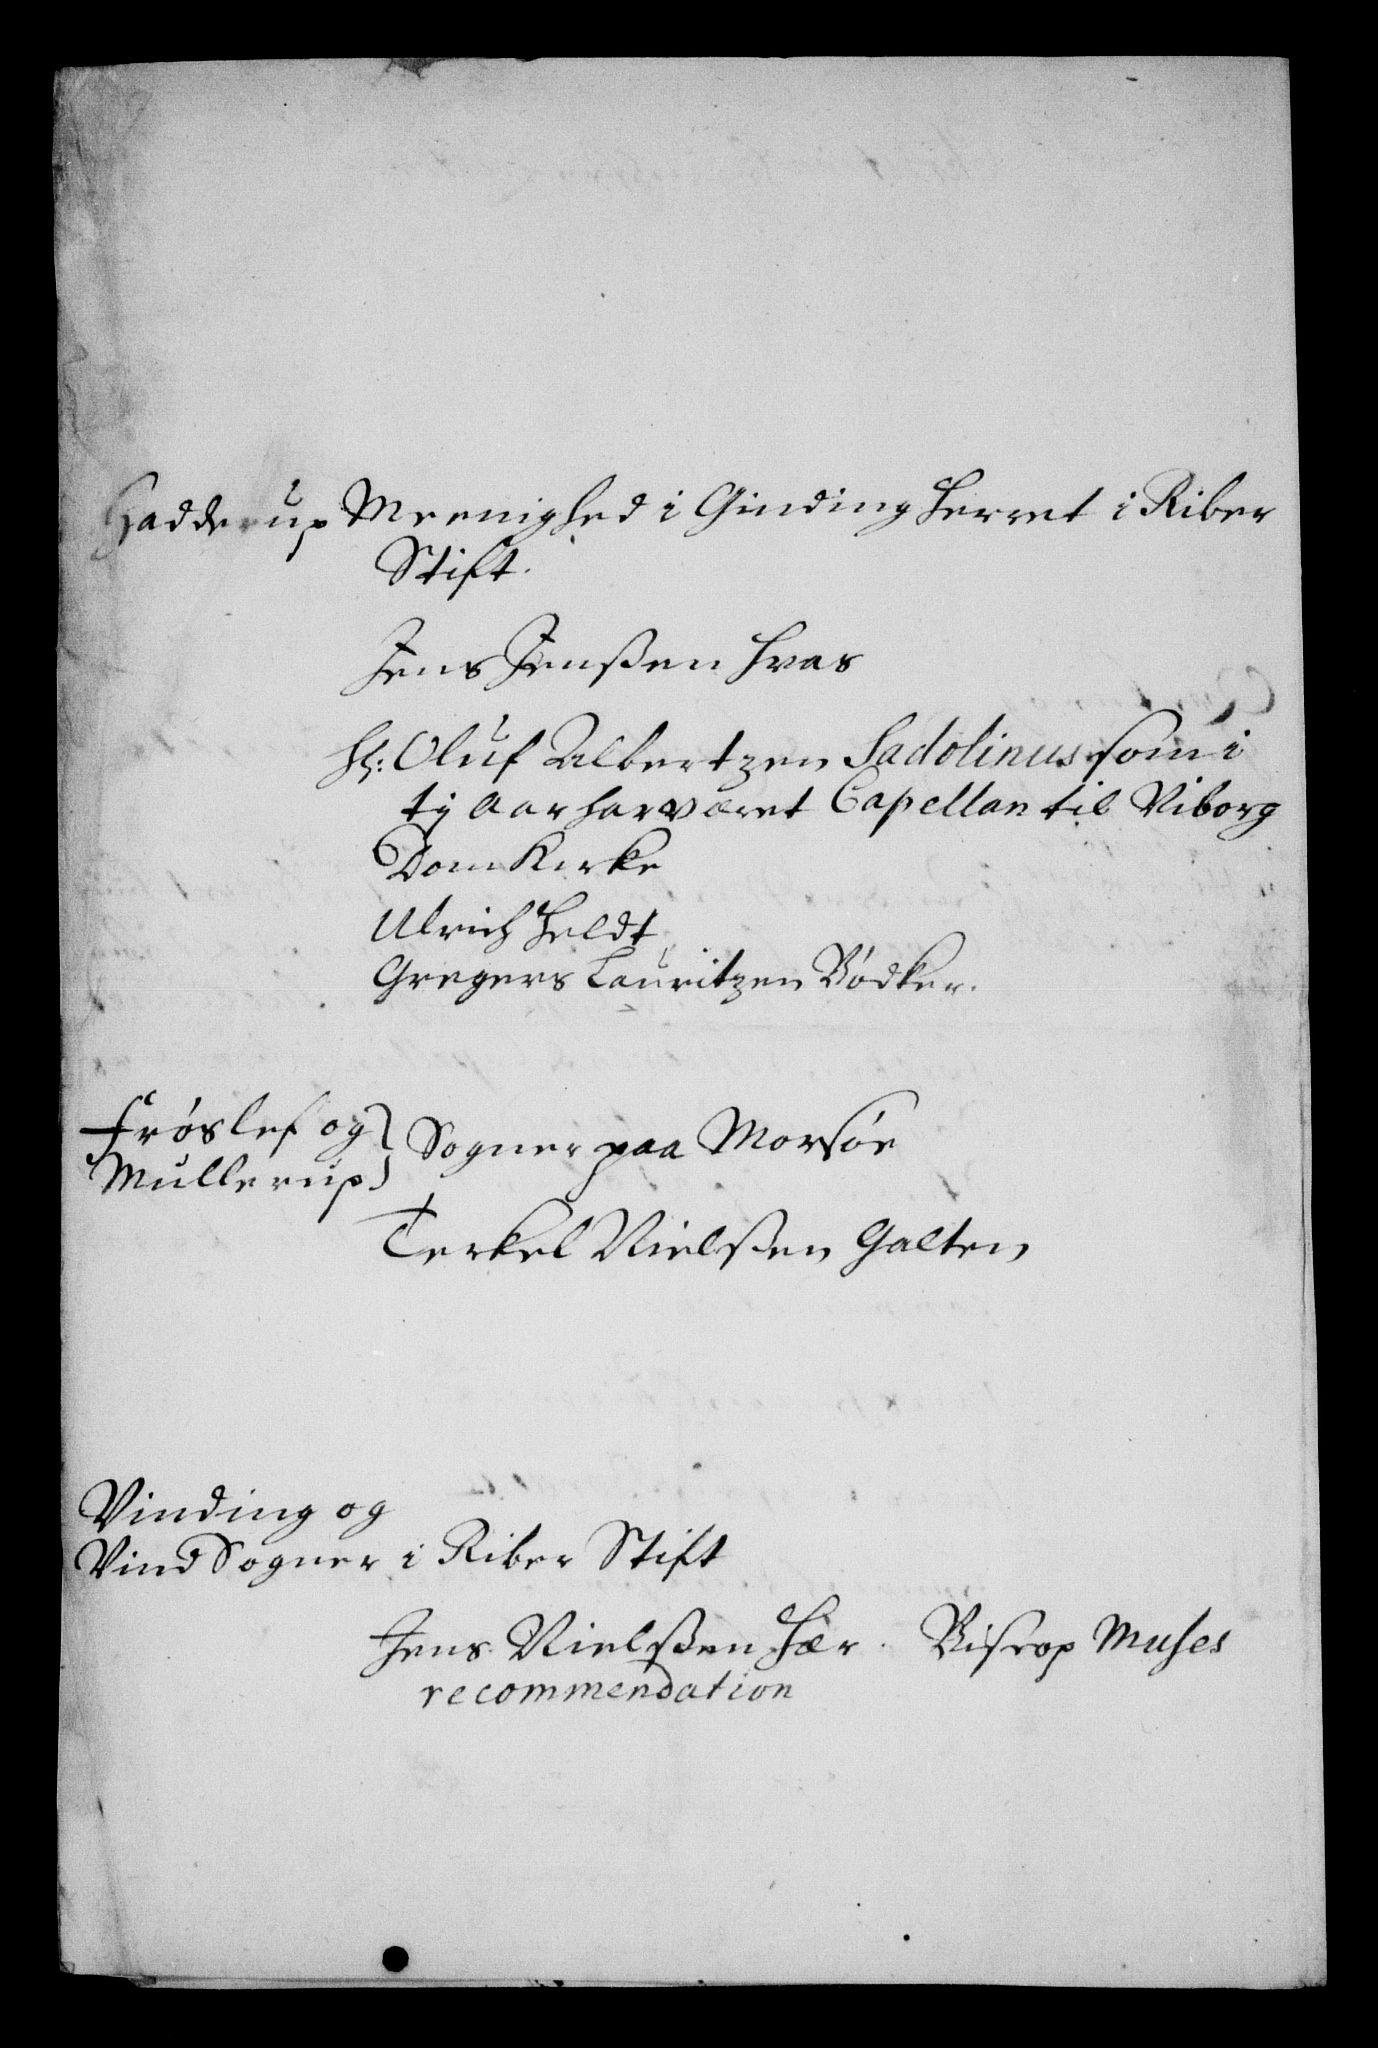 Hadderup Meenighed i Ginding herret i Riber
Stift.
Jens Jenßen Hvas
Hl: Oluf Albertzen Sadolinus som i
tj Aar har været Capellan til Viborg
Dom Kirke
Ulrich Heldt
Gregers Lauritzen Bödker.
Frøslef og
Mullerup } Sogner paa Morsøe
Terkel Nielßen Galten
Vinding og
Vind Sogner i Riber Stift
Jens Nielßen Hær. Biscop Muhes
recommendation